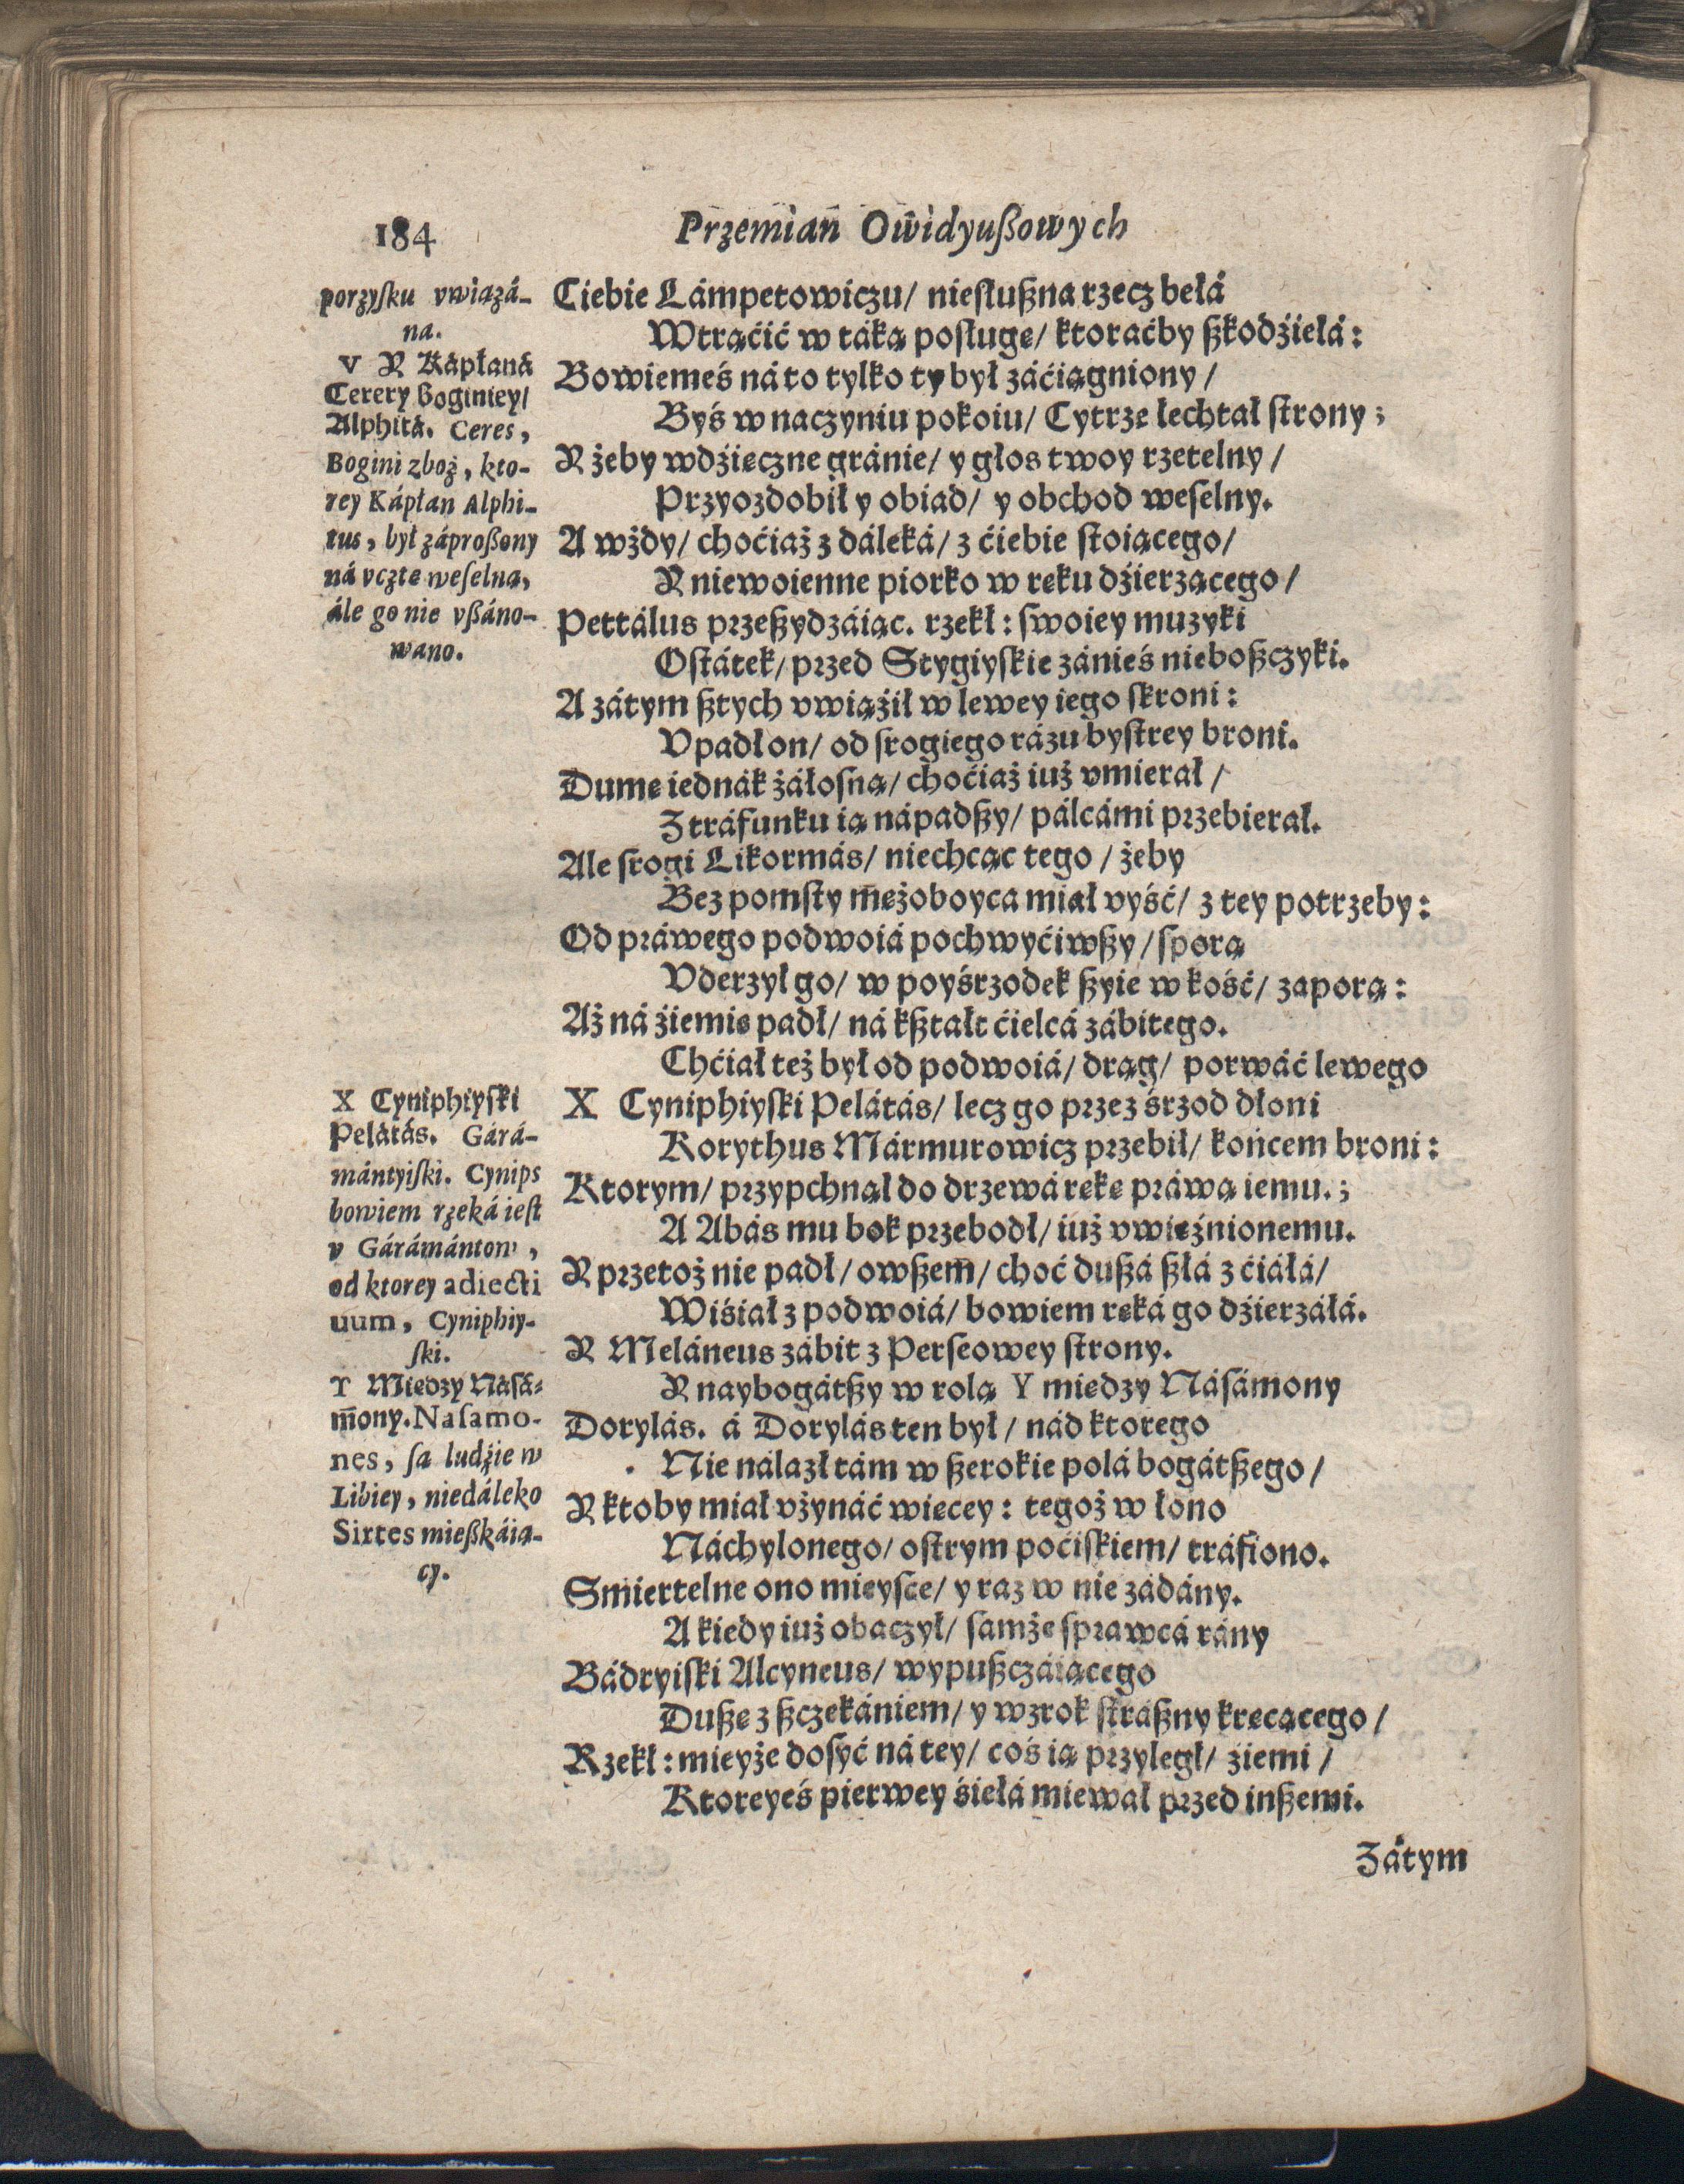 184
Przemian Owidyußowych
porzyſku vwiązá-
na.
V Y Kápłaná
Cerery Boginiey/
Alphitá. Ceres,
Bogini zboż, kto-
rey Kápłan Alphi-
tus, był záproßony
ná vcztę weſelną,
ále go nie vßáno-
wano.
Ciebie Lámpetowiczu/ niesłußna rzecz bełá
Wtrąćić w táką posługę/ ktoraćby ßkodźiełá:
Bowiemeś ná to tylko ty był záćiągniony/
Byś w naczyniu pokoiu/ Cytrze łechtał ſtrony;
Y żeby wdźięczne gránie/ y głos twoy rzetelny/
Przyozdobił y obiad/ y obchod weſelny.
A wżdy/ choćiaż z dáleká/ z ćiebie ſtoiącego/
Y niewoienne piorko w ręku dźierzącego/
Pettálus przeßydzáiąc. rzekł: ſwoiey muzyki
Oſtátek/ przed Stygiyſkie zánieś nieboßczyki.
A zátym ßtych vwiąźił w lewey iego ſkroni:
Vpadł on/ od ſrogiego rázu byſtrey broni.
Dumę iednák żáłoſną/ choćiaż iuż vmierał/
Z tráfunku ią nápadßy/ pálcámi przebierał.
Ale ſrogi Likormás/ niechcąc tego/ żeby
Bez pomſty m̃ężoboyca miał vyść/ z tey potrzeby:
Od práwego podwoiá pochwyćiwßy/ ſporą
Vderzył go/ w poyśrzodek ßyie w kość/ zaporą:
Aż ná źiemię padł/ ná kßtałt ćielcá zábitego.
Chćiał też był od podwoiá/ drąg/ porwáć lewego
X Cyniphiyſki
Pelátás. Gárá-
mántyiſki. Cynips
bowiem rzeká ieſt
v Gárámántow,
od ktorey adiecti
uum, Cyniphiy-
ſki.
X Cyniphiyſki Pelátás/ lecz go przez śrzod dłoni
Korythus Mármurowicz przebił/ końcem broni:
Ktorym/ przypchnął do drzewá rękę práwą iemu.;
A Abás mu bok przebodł/ iuż vwięźnionemu.
Y przetoż nie padł/ owßem̃/ choć dußá ßłá z ćiáłá/
Wiśiał z podwoiá/ bowiem ręká go dźierzáłá.
Y Meláneus zábit z Perſeowey ſtrony.
Y naybogátßy w rolą Y miedzy Náſámony
Dorylás. á Dorylás ten był/ nád ktorego
Nie nálazł tám w ßerokie polá bogátßego/
Y ktoby miał vżynáć więcey: tegoż w łono
Náchylonego/ oſtrym poćiſkiem/ tráfiono.
Smiertelne ono mieyſce/ y raz w nie zádány.
A kiedy iuż obaczył/ ſamże ſprawcá rány
Bádryiſki Alcyneus/ wypußczáiącego
Dußę z ßczekániem/ y wzrok ſtráßny kręcącego/
Rzekł: mieyże dosyć ná tey/ coś ią przyległ/ źiemi/
Ktoreyeś pierwey śiełá miewał przed inßemi.
Y Miedzy Náſá-
m̃ony. Naſamo-
nes, ſą ludźie w
Libiey, niedáleko
Sirtes mießkáią-
cy.
Zátym